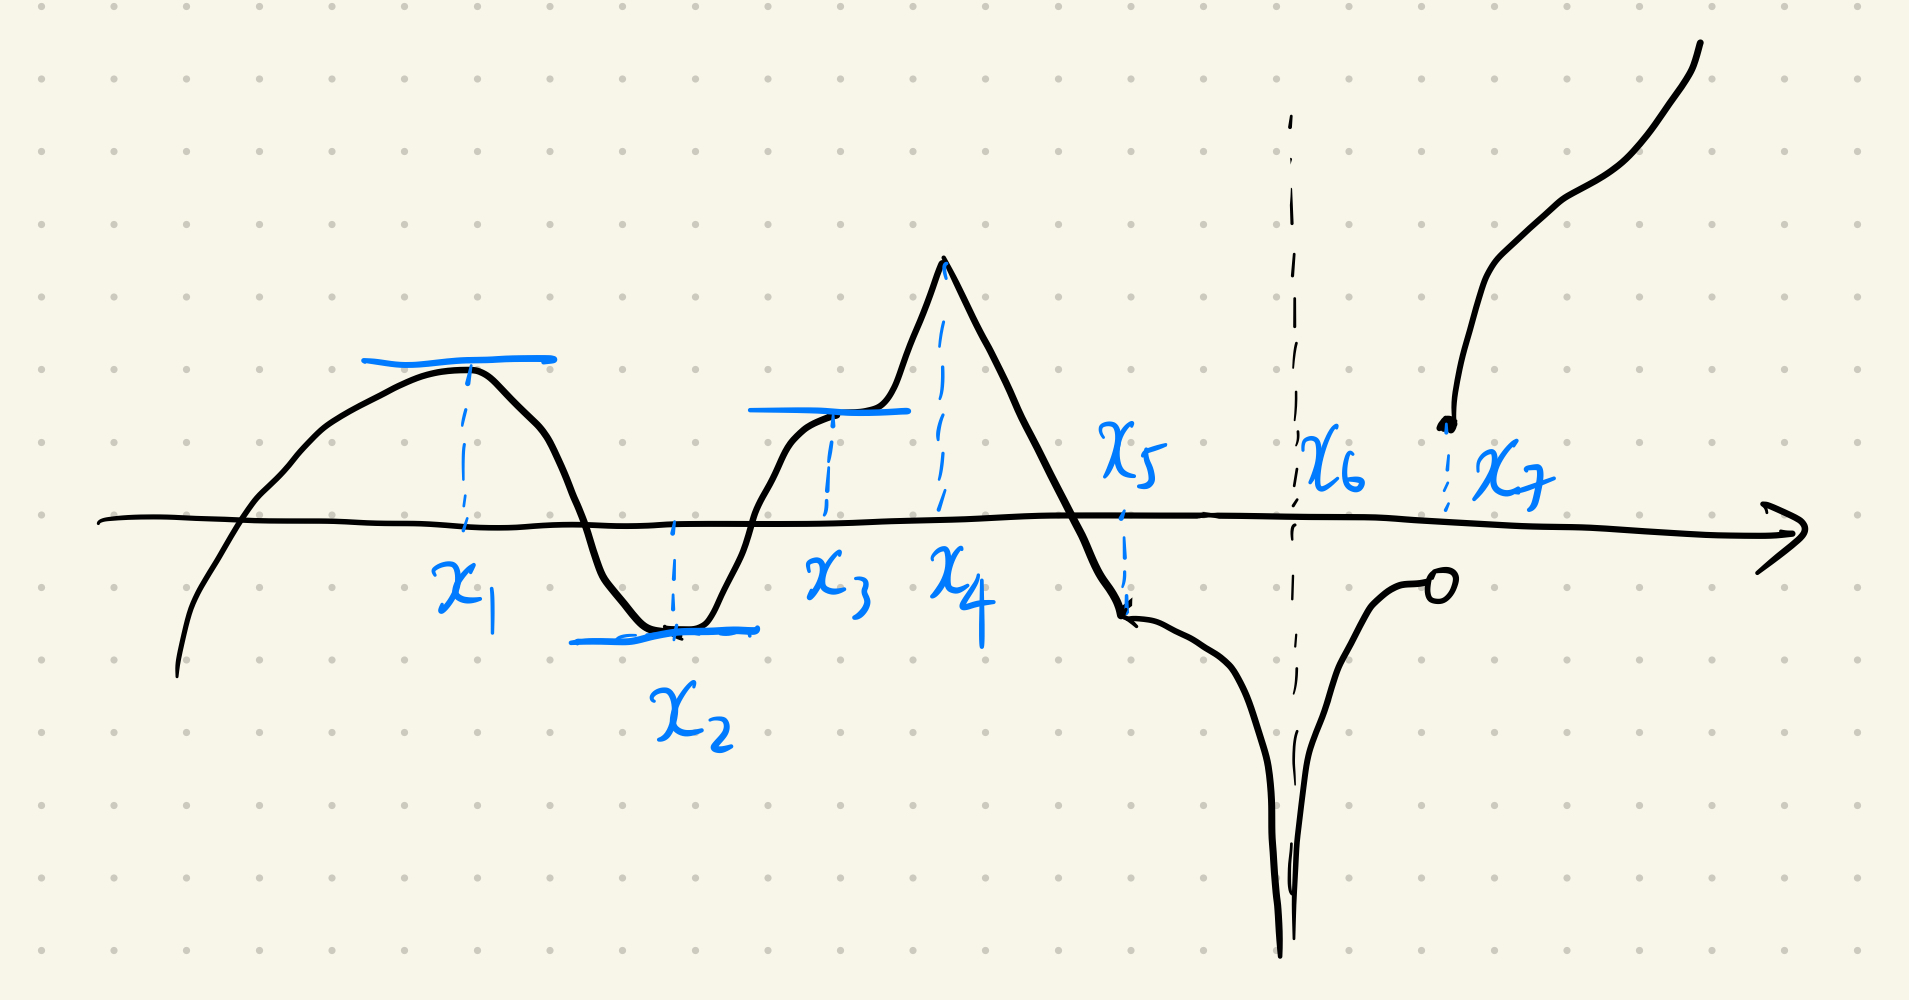 x₁
x₂
x₃
x₄
x₅
x₆
x₇